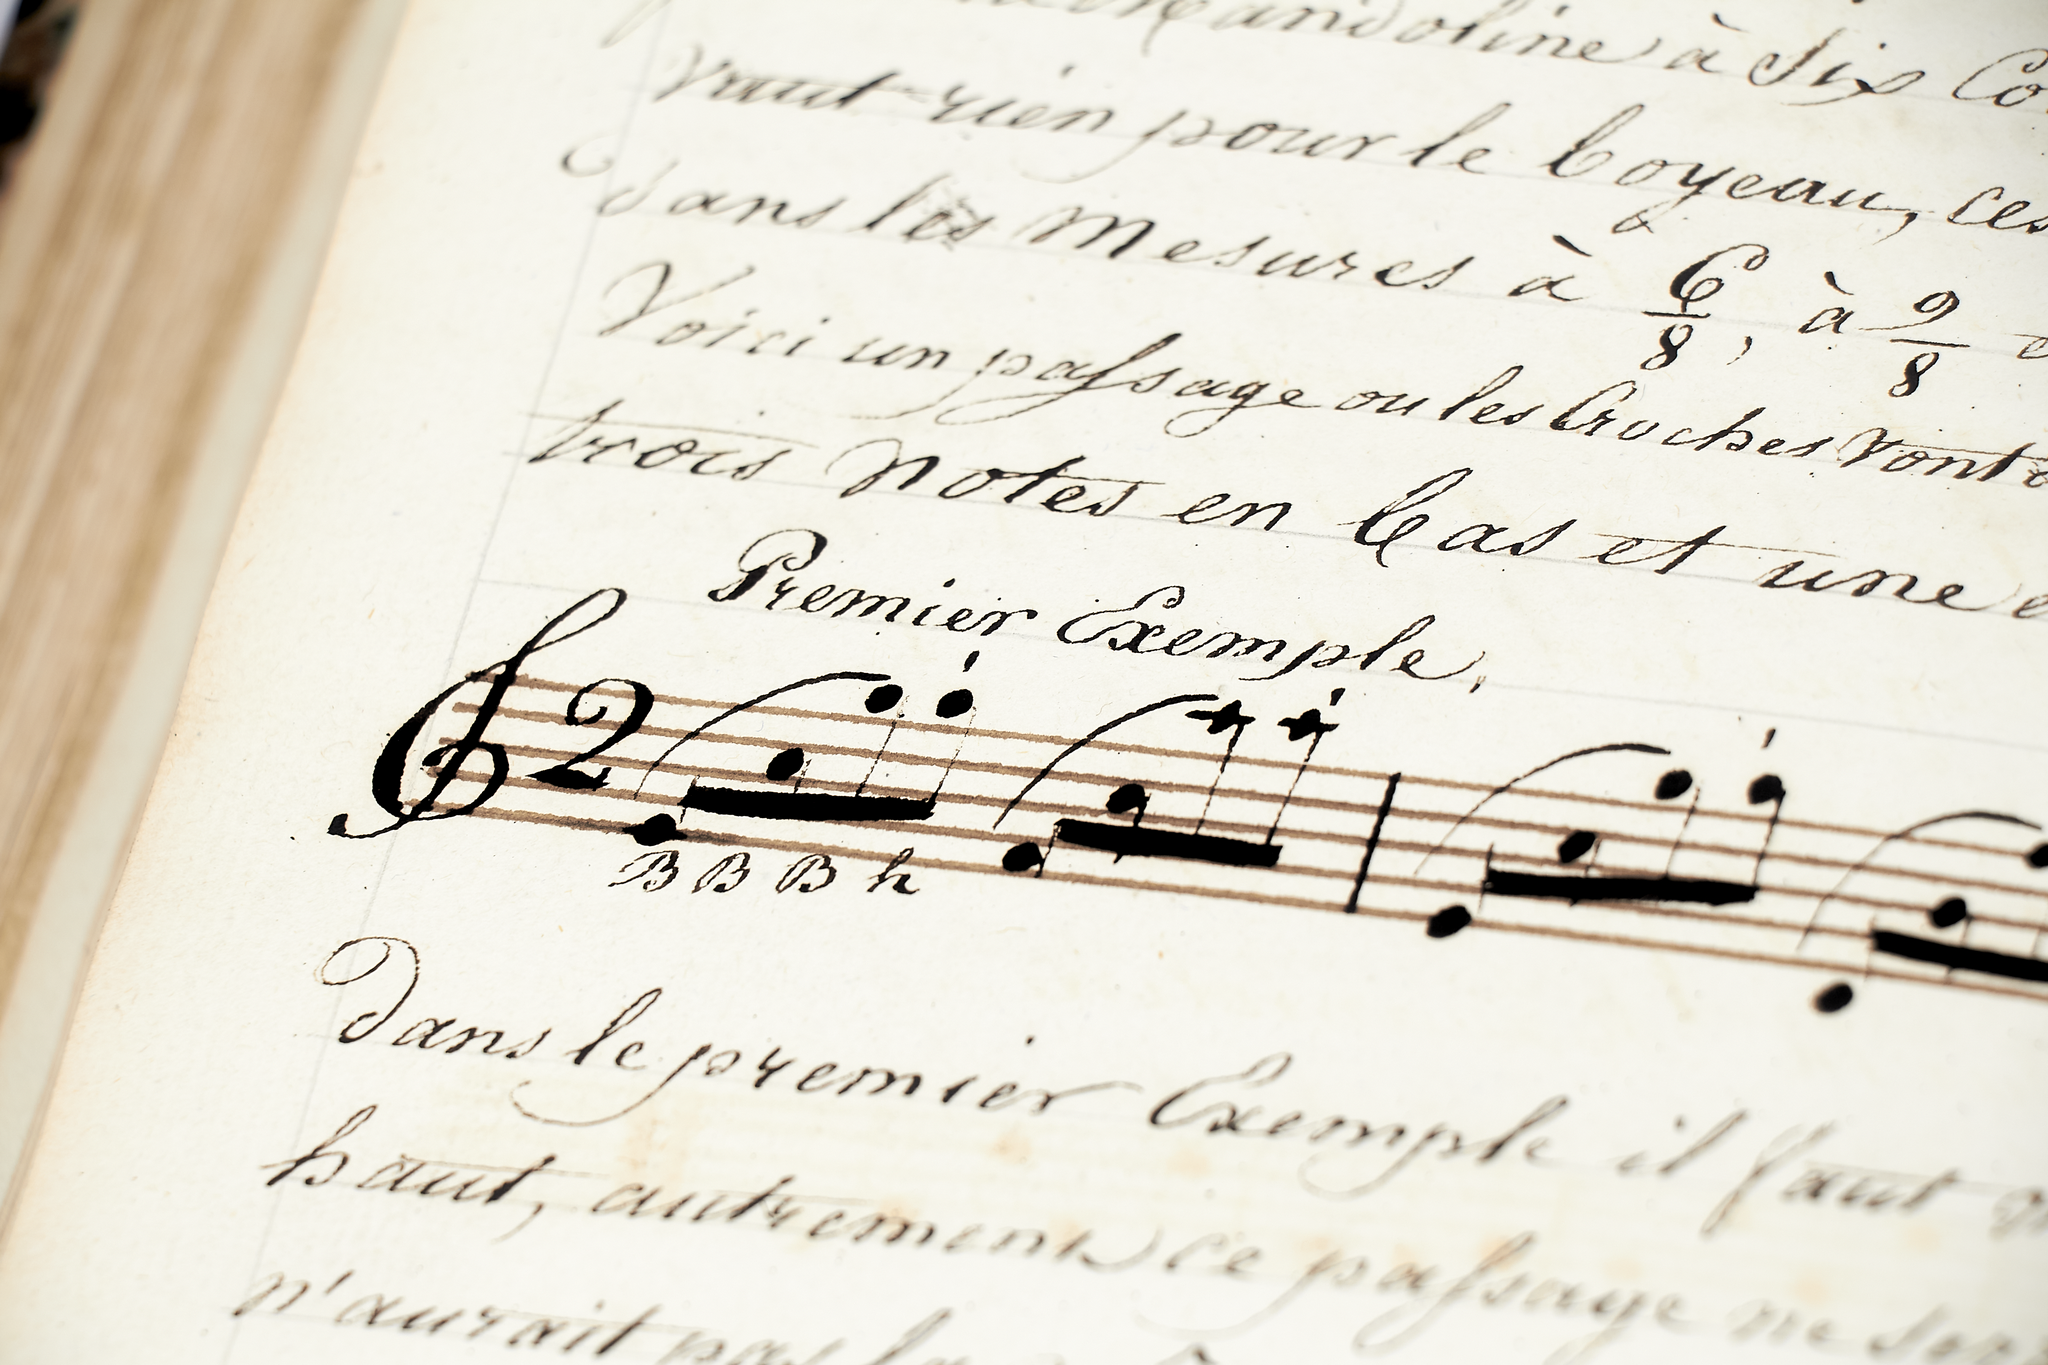 Mandoline à Six Co
Vaut-rien pour le boyeau, ces
dans les Mesures à 6/8, à 9/8 e
Voici un passage ou les Croches vont
trois Notes en bas et une
Premier Exemple.
2
B B B h
Dans le premier Exemple il faut
haut, autrement ce passage ne ser
n'aurait pas